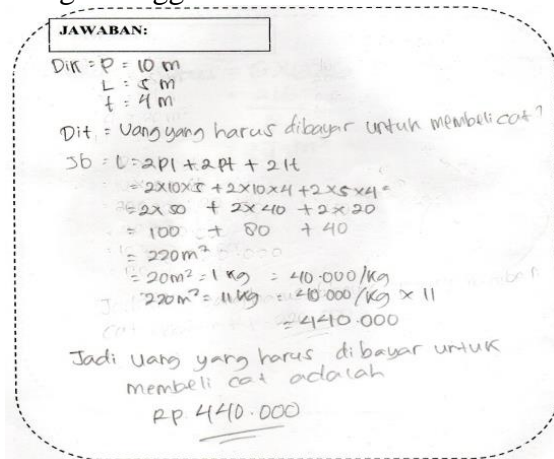 JAWABAN:
Dik = P = 10 m
L = 5 m
t = 4 m
Dit = Uang yang harus dibayar untuk membeli cat?
Jb = L = 2pl + 2pt + 2lt
= 2x10x5 + 2x10x4 + 2x5x4
= 2x50 + 2x40 + 2x20
= 100 + 80 + 40
= 220 m²
= 20m² = 1 kg = 40.000/kg
220 m² = 11 kg = 40.000/kg x 11
= 440.000
Jadi uang yang harus dibayar untuk
membeli cat adalah
Rp. 440.000